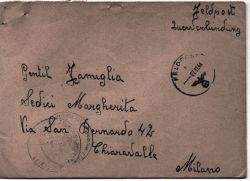 Feldpost
Querverbindung
FELDPOST
Gentil Famiglia
Sedici Margherita
Via San Bernardo 42
Chiaravalle
Milano